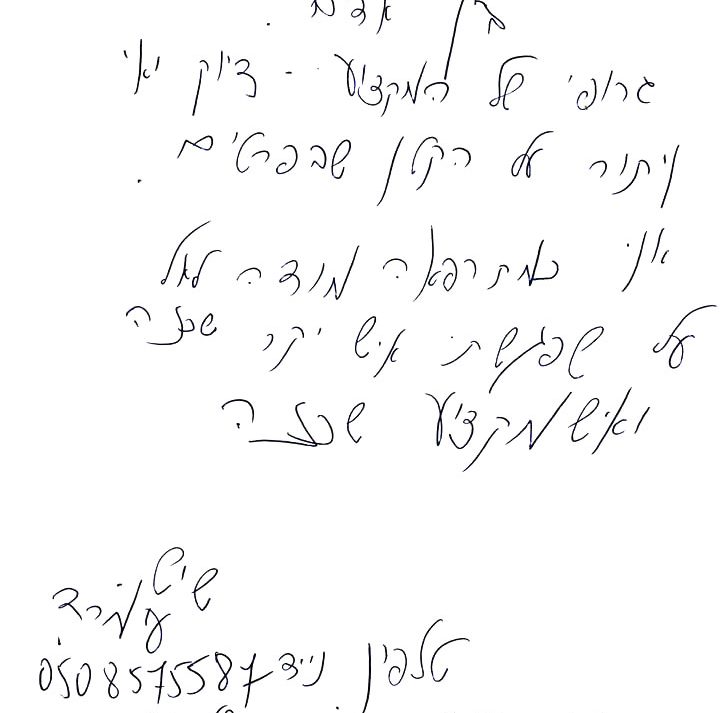 כל אדם.
גרופי של המקצוע - דיוק ואי
ויתור על הקטן שבפרטים.
אני כמתרפאה מודה לאל
על שפגשתי איש יקר שכזה
ואיש מקצוע שכזה
שיש
עמרד
טלפון נייד 0508575587